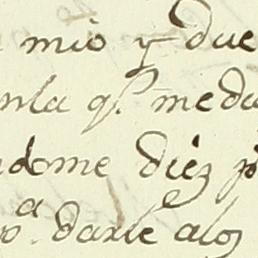 mío y due
nla q.^e me da
dome diez p
p.^a darle a los